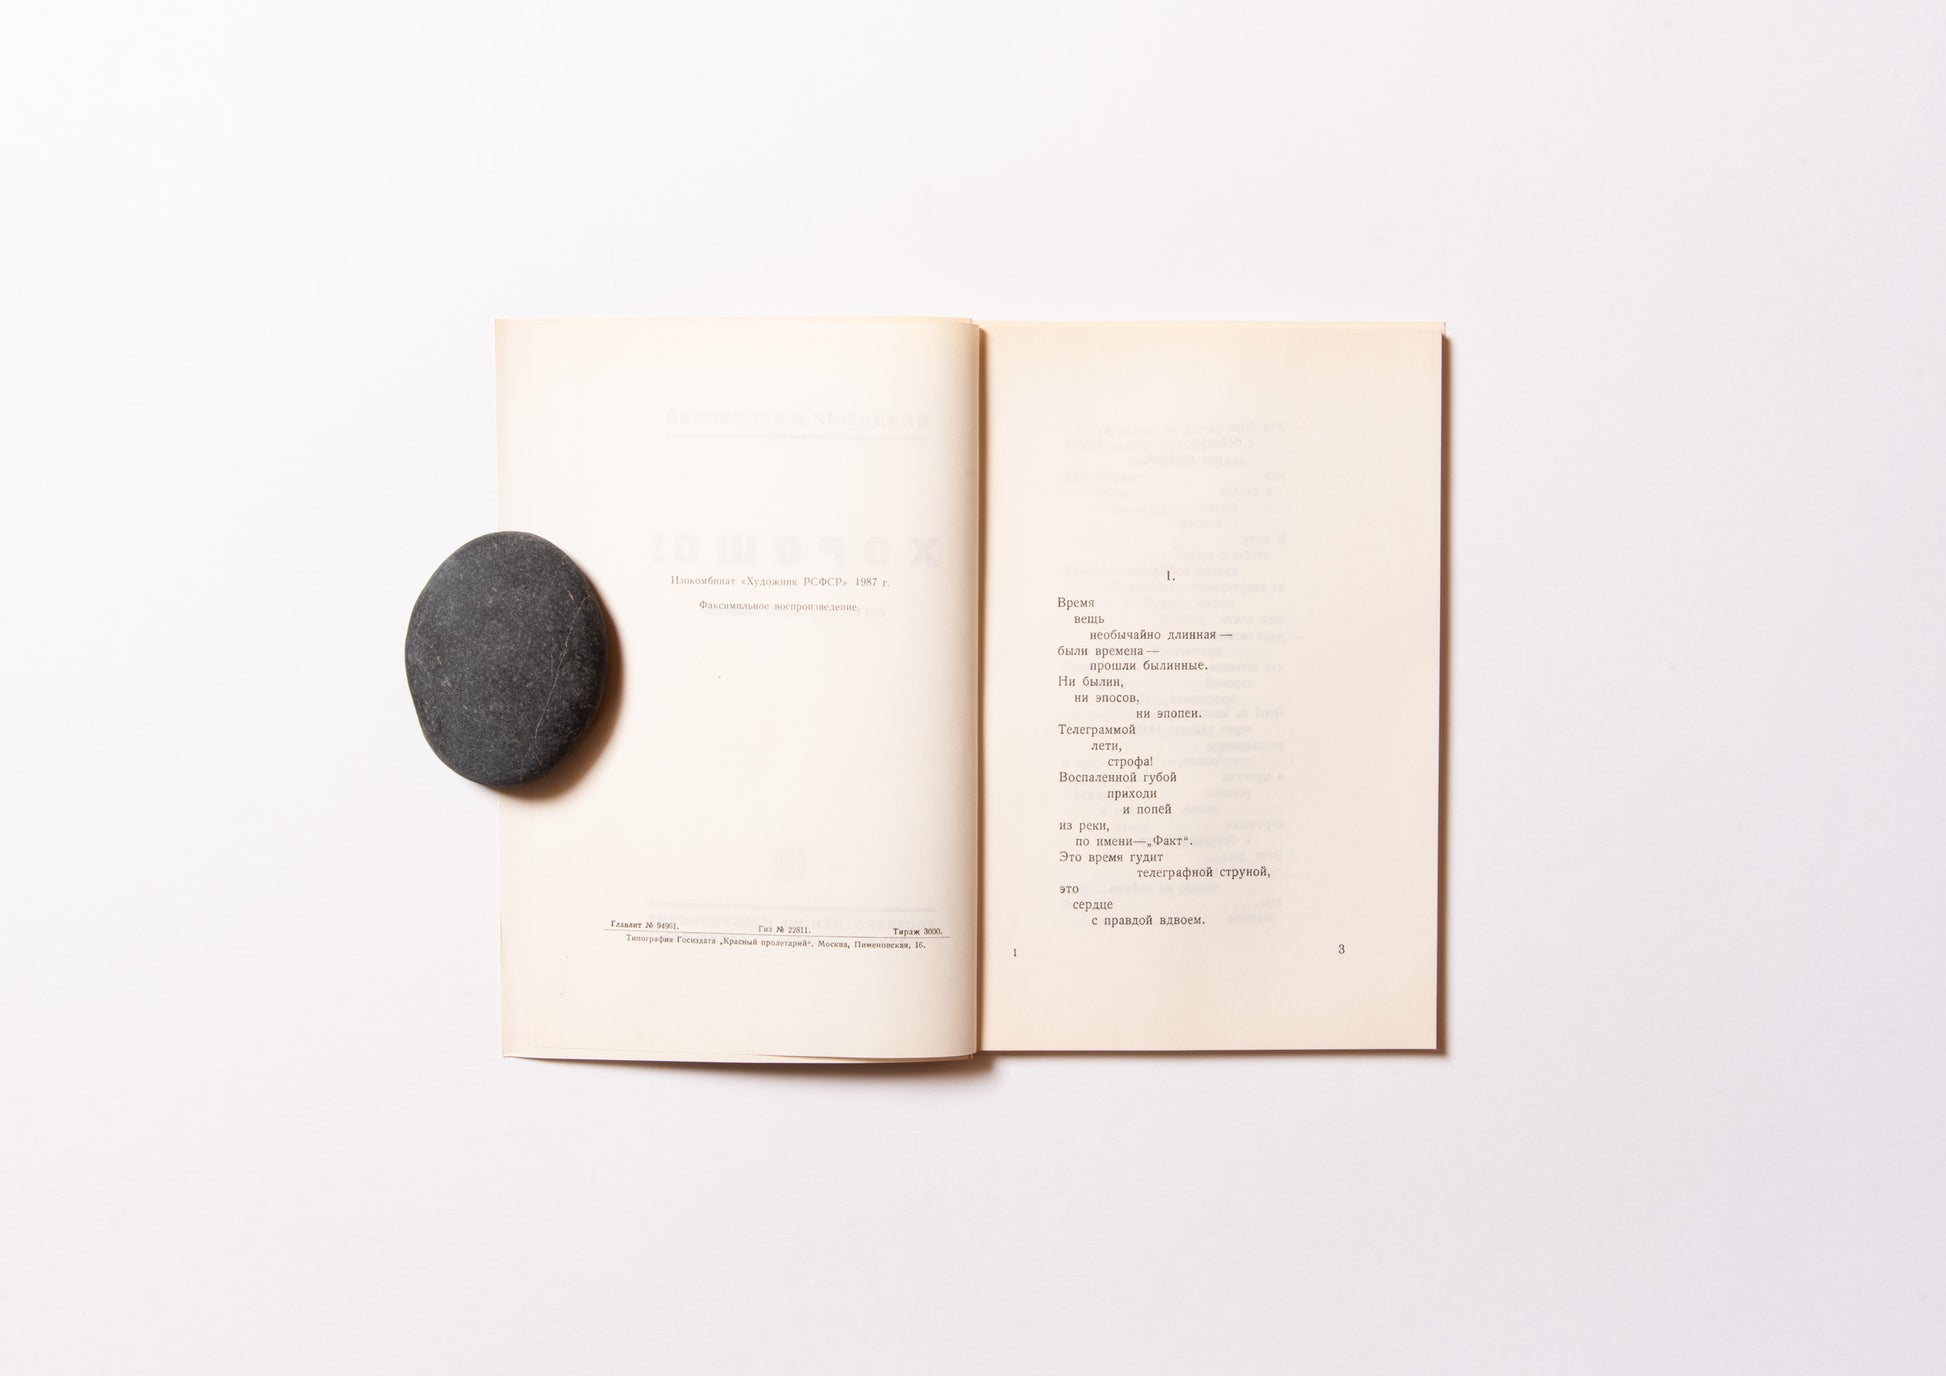 Изокомбинат «Художник РСФСР» 1987 г.
Факсимильное воспроизведение.
Главлит № 94961. Гиз № 22811. Тираж 3000.
Типография Госиздата „Красный пролетарий“. Москва, Пименовская, 16.
1.
Время
вещь
необычайно длинная —
были времена —
прошли былинные.
Ни былин,
ни эпосов,
ни эпопей.
Телеграммой
лети,
строфа!
Воспаленной губой
приходи
и попей
из реки,
по имени—„Факт“.
Это время гудит
телеграфной струной,
это
сердце
с правдой вдвоем.
1
3